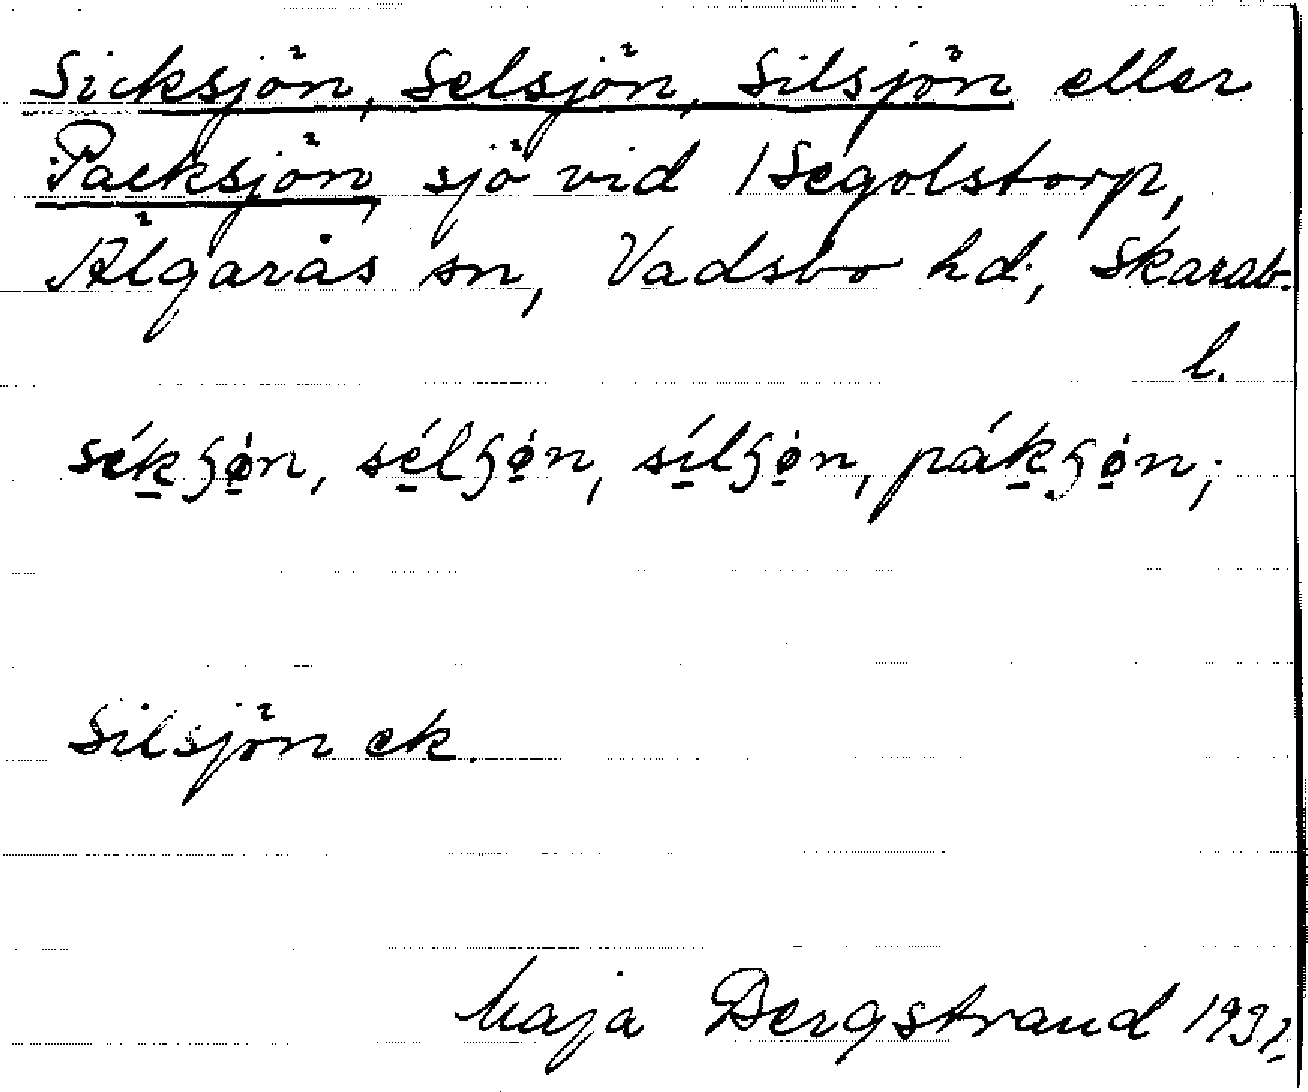 Sicksjön, Selsjön, Silsjön eller
Packsjön, sjö vid Segolstorp,
Älgarås sn, Vadsbo hd, Skarab.
l.
sékʃøn, sélʃøn, sílʃøn, pákʃøn;
Silsjön ek.
Maja Bergstrand 1931.